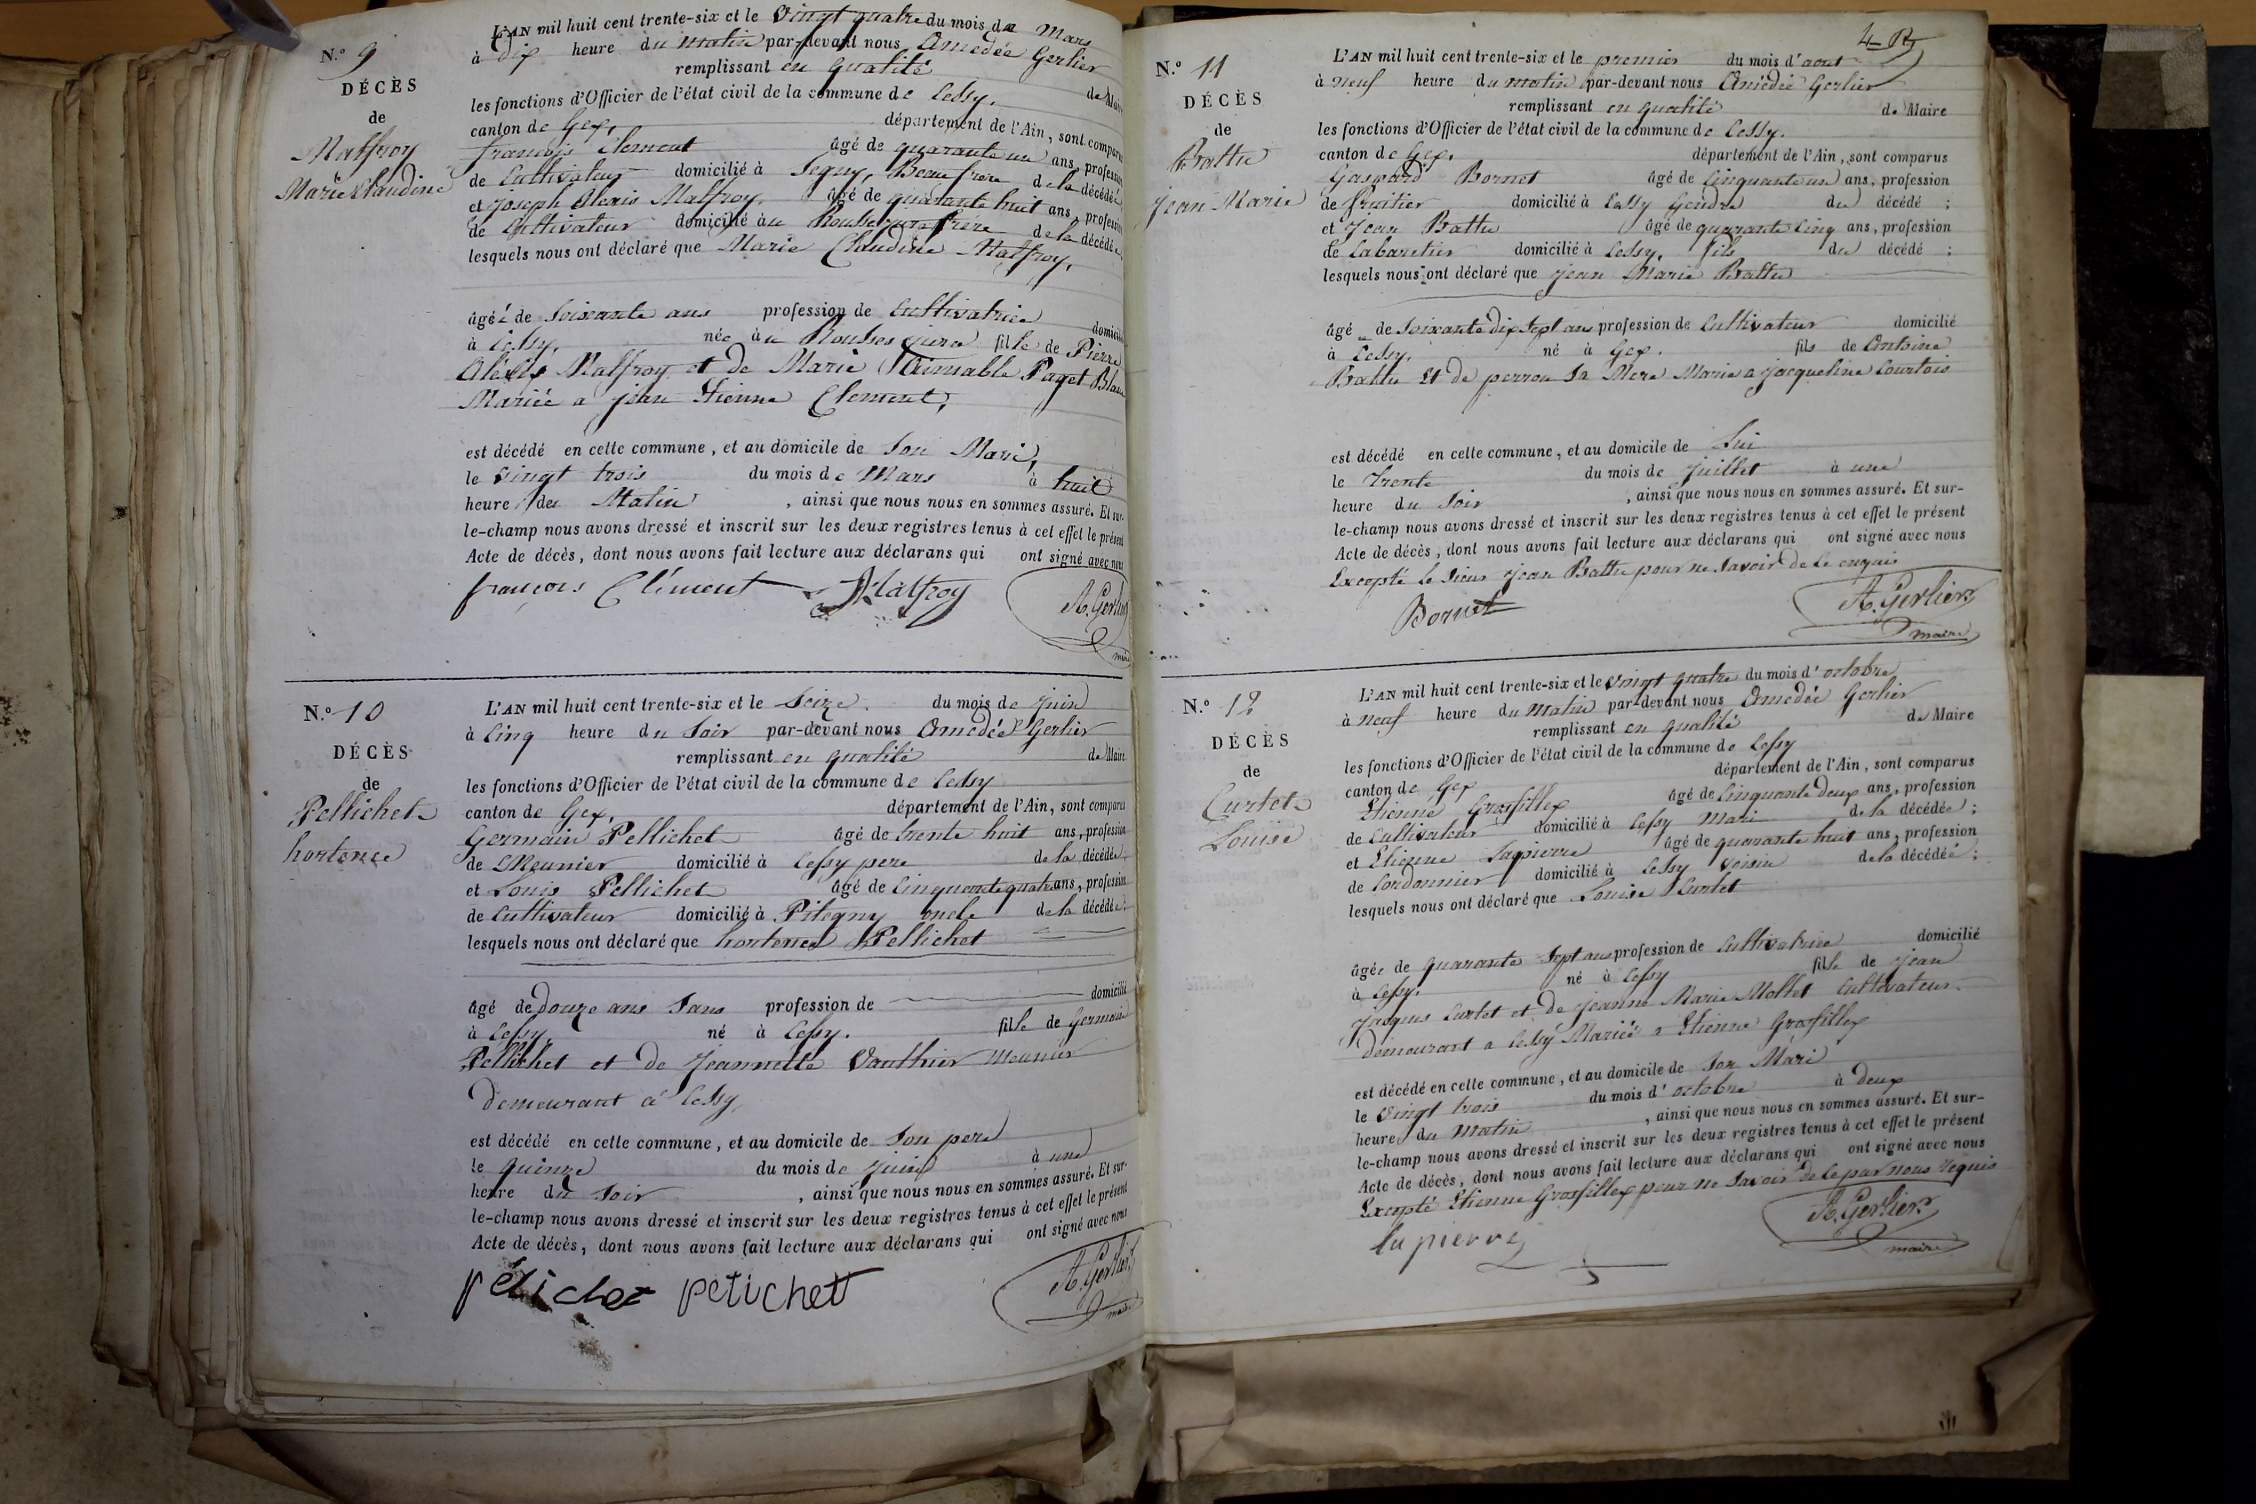 N.º 9
DÉCÈS
de
Malfroy
Marie Claudine
L'AN mil huit cent trente-six et le vingt quatre du mois de Mars
à dix heure du matin par-devant nous Amedée Gerlier
remplissant en qualité de Maire
les fonctions d'Officier de l'état civil de la commune de Cessy.
canton de Gex, département de l'Ain, sont comparus
françois Clement âgé de quarante un ans, profession
de Cultivateur domicilié à Segny, Beaufrere de la décédée
et joseph Alexis Malfroy. âgé de quarante huit ans, profession
de Cultivateur domicilié au Rousses jura frère de la décédée
lesquels nous ont déclaré que Marie Claudine Malfroy,
âgéé de Soixante ans profession de Cultivatrice domicilié
à Cessy, née au Rousses jura fille de Pierre
Alexis Malfroy et de Marie Aimable Paget Blanc
Mariée a jean Etienne Clement,
est décédé en cette commune, et au domicile de Son Mari,
le vingt trois du mois de Mars à huit
heure du Matin, ainsi que nous nous en sommes assuré. Et sur-
le-champ nous avons dressé et inscrit sur les deux registres tenus à cet effet le présent
Acte de décès, dont nous avons fait lecture aux déclarans qui ont signé avec nous
françois Clément Malfroy A. Gerlier
maire
N.º 10
DÉCÈS
de
Pellichet
hortence
L'AN mil huit cent trente-six et le Seize. du mois de juin
à Cinq heure du Soir par-devant nous Amedée Gerlier
remplissant en qualité de Maire
les fonctions d'Officier de l'état civil de la commune de Cessy
canton de Gex, département de l'Ain, sont comparus
Germain Pellichet âgé de trente huit ans, profession
de Meunier domicilié à Cessy pere de la décédée
et Louis Pellichet âgé de Cinquante quatre ans, profession
de Cultivateur domicilié à Pitegny oncle de la décédée
lesquels nous ont déclaré que hortence Pellichet
âgé de douze ans Sans profession de domicilié
à Cessy né à Cessy. fille de Germain
Pellichet et de Jeannette Vauthier Meunier
demeurant à Cessy,
est décédé en cette commune, et au domicile de Son pere
le quinze du mois de juin à une
heure du Soir, ainsi que nous nous en sommes assuré. Et sur-
le-champ nous avons dressé et inscrit sur les deux registres tenus à cet effet le présent
Acte de décès, dont nous avons fait lecture aux déclarans qui ont signé avec nous
pélichet petichet A. Gerlier
maire
N.º 11
DÉCÈS
de
Battu
jean Marie
L'AN mil huit cent trente-six et le premier du mois d'aout
à neuf heure du matin par-devant nous Amédée Gerlier
remplissant en qualité de Maire
les fonctions d'Officier de l'état civil de la commune de Cessy.
canton de Gex. département de l'Ain, sont comparus
Gaspard Bornet âgé de Cinquante un ans, profession
de fruitier domicilié à Cessy Gendre du décédé ;
et Jean Battu âgé de quarante Cinq ans, profession
de Cabaretier domicilié à Cessy, fils du décédé ;
lesquels nous ont déclaré que jean Marie Battu
âgé de Soixante dix Sept ans profession de Cultivateur domicilié
à Cessy. né à Gex. fils de Antoine
Battu Et de perron Sa Mere Marie a jacqueline Courtois
est décédé en cette commune, et au domicile de lui
le Trente du mois de juillet à une
heure du Soir, ainsi que nous nous en sommes assuré. Et sur-
le-champ nous avons dressé et inscrit sur les deux registres tenus à cet effet le présent
Acte de décès, dont nous avons fait lecture aux déclarans qui ont signé avec nous
Excepté le Sieur jean Battu pour ne Savoir de le enquis
Bornet A. Gerlier
maire
N.º 12
DÉCÈS
de
Curtet
Louise
L'AN mil huit cent trente-six et le vingt quatre du mois d'octobre
à neuf heure du matin par-devant nous Amedée Gerlier
remplissant en qualité de Maire
les fonctions d'Officier de l'état civil de la commune de Cessy
canton de Gex département de l'Ain, sont comparus
Etienne Grosfillex âgé de Cinquante deux ans, profession
de Cultivateur domicilié à Cessy Mari de la décédée ;
et Etienne Lapierre âgé de quarante huit ans, profession
de Cordonnier domicilié à Cessy voisin de la décédéé ;
lesquels nous ont déclaré que Louise Curtet
âgée de quarante Sept ans profession de Cultivatrice domicilié
à Cessy. né à Cessy fille de jean
jacques Curtet et de jeanne Marie Mollet Cultivateur
demeurant a Cessy Mariée a Etienne Grosfillex
est décédé en cette commune, et au domicile de Son Mari
le vingt trois du mois d'octobre à deux
heure du Matin, ainsi que nous nous en sommes assuré. Et sur-
le-champ nous avons dressé et inscrit sur les deux registres tenus à cet effet le présent
Acte de décès, dont nous avons fait lecture aux déclarans qui ont signé avec nous
Excepté Etienne Grosfillex pour ne Savoir de le par nous requis
lapierre A. Gerlier
maire